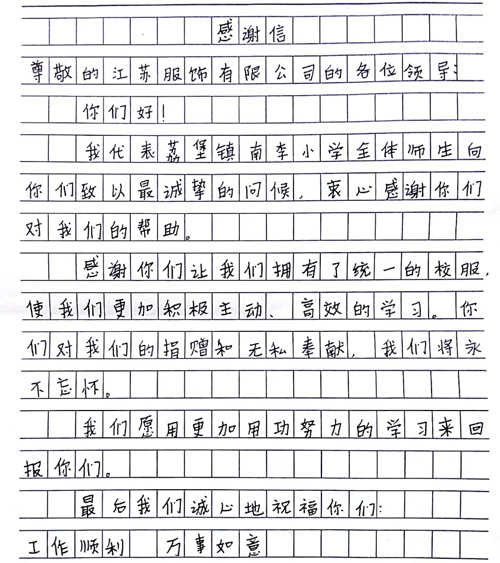 感谢信
尊敬的江苏服饰有限公司的各位领导:
你们好!
我代表荔堡镇南李小学全体师生向
你们致以最诚挚的问候,衷心感谢你们
对我们的帮助。
感谢你们让我们拥有了统一的校服,
使我们更加积极主动、高效的学习。你
们对我们的捐赠和无私奉献,我们将永
不忘怀。
我们愿用更加用功努力的学习来回
报你们。
最后我们诚心地祝福你们:
工作顺利 万事如意